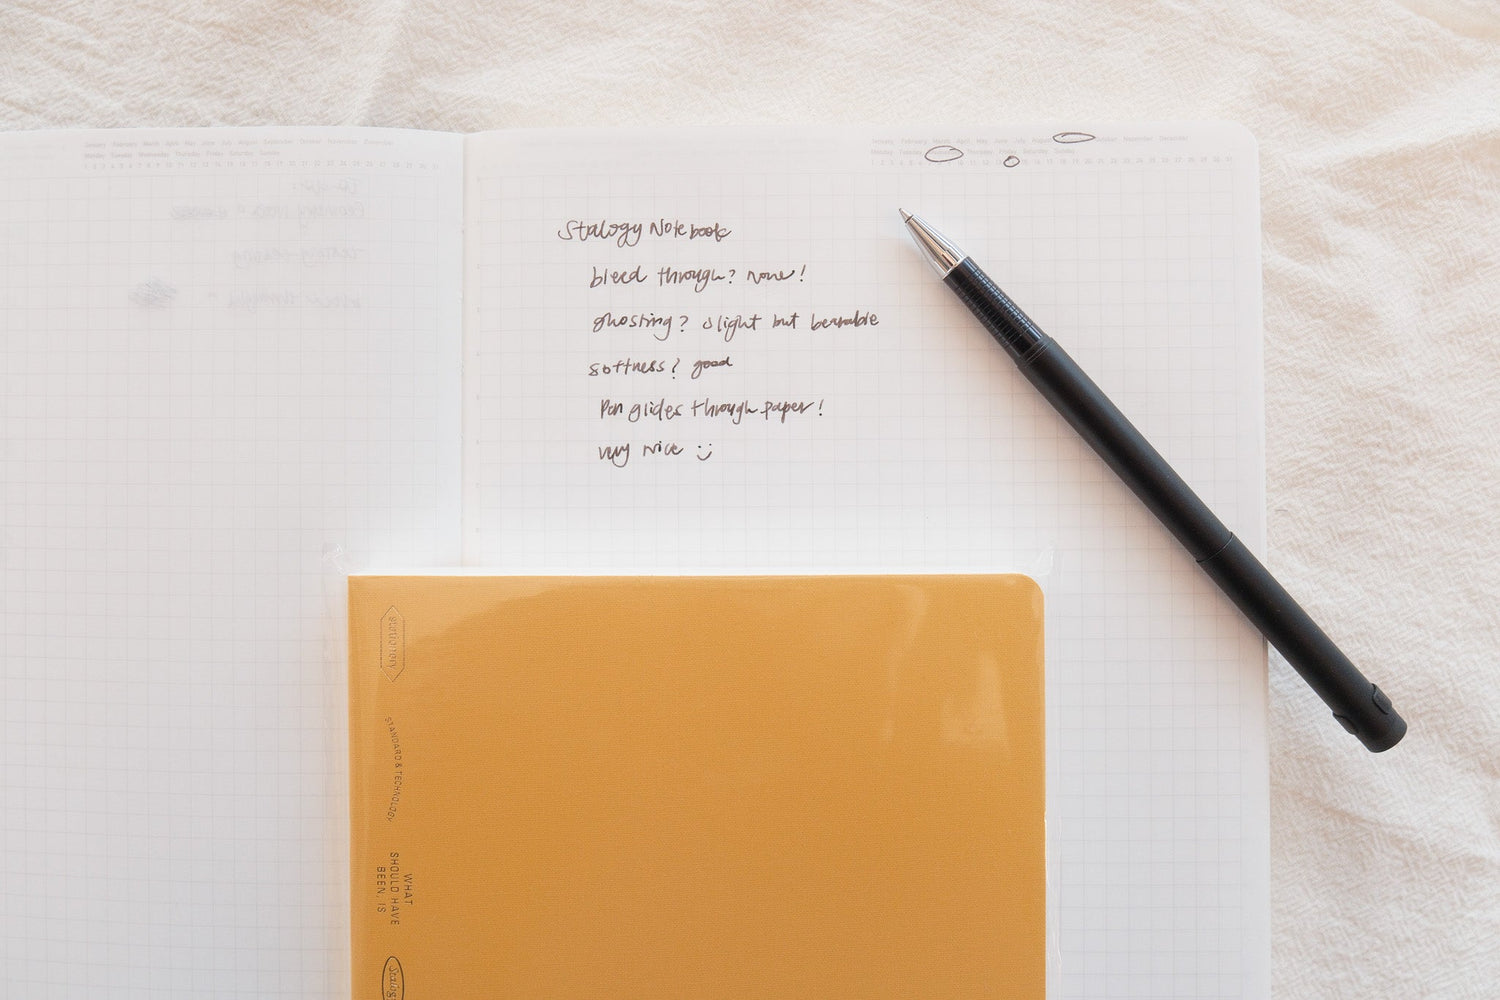 January February March April May June July August September October November December
Monday Tuesday Wednesday Thursday Friday Saturday Sunday
1 2 3 4 5 6 7 8 9 10 11 12 13 14 15 16 17 18 19 20 21 22 23 24 25 26 27 28 29 30 31
January February March April May June July August October November December
Monday Tuesday Thursday Friday Saturday Sunday
Stalogy Notebook
bleed through? none!
ghosting? slight but bearable
softness? good
Pen glides through paper!
very nice :)
stationery
STANDARD & TECHNOLOGY
WHAT
SHOULD HAVE
BEEN, IS